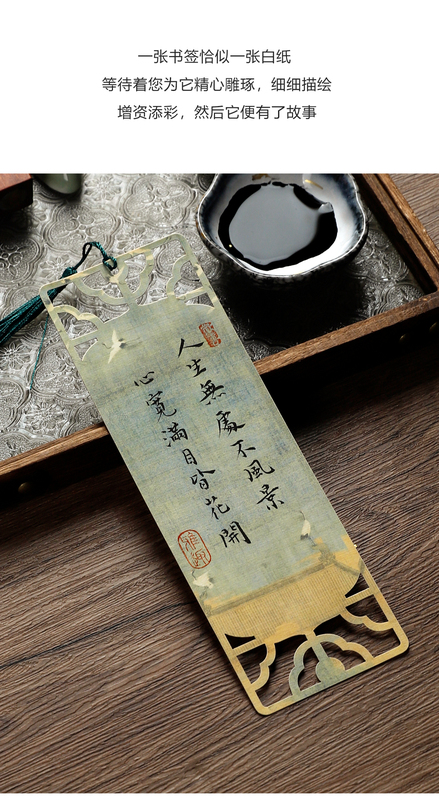 一张书签恰似一张白纸
等待着您为它精心雕琢，细细描绘
增资添彩，然后它便有了故事
人生無處不風景
心寬滿目皆花開